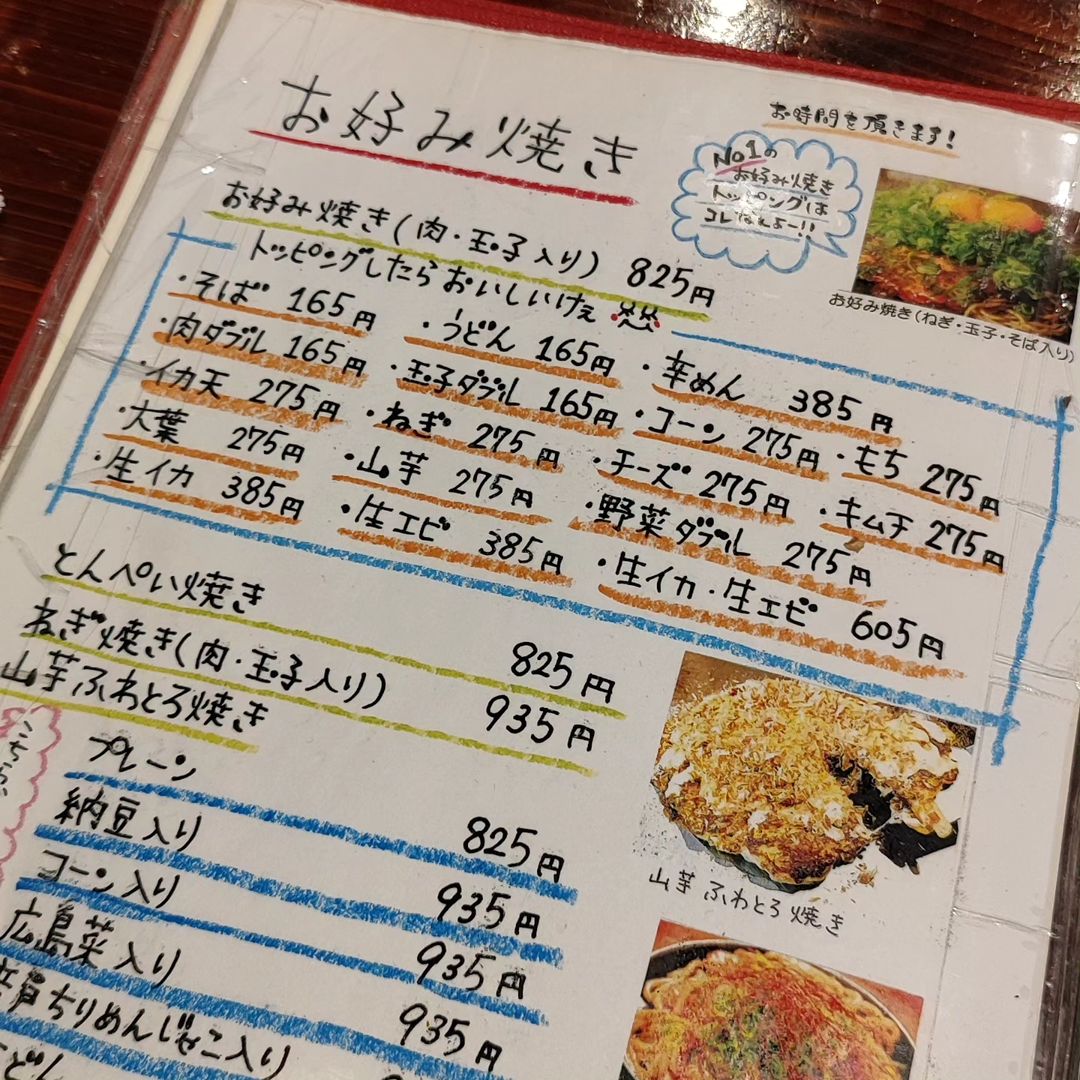 お好み焼き
お時間を頂きます!
No1の
お好み焼き
トッピングは
コレなぇよー!!
お好み焼き(ねぎ・玉子・そば入り)
お好み焼き(肉・玉子入り) 825円
トッピングしたらおいしいけぇ
・そば 165円 ・うどん 165円 ・辛めん 385円
・肉ダブル 165円 ・玉子ダブル 165円 ・コーン 275円 ・もち 275円
・イカ天 275円 ・ねぎ 275円 ・チーズ 275円 ・キムチ 275円
・大葉 275円 ・山芋 275円 ・野菜ダブル 275円
・生イカ 385円 ・生エビ 385円 ・生イカ・生エビ 605円
とんぺい焼き 825円
ねぎ焼き(肉・玉子入り) 935円
山芋ふわとろ焼き
プレーン 825円
納豆入り 935円
コーン入り 935円
広島菜入り 935円
ちりめんじゃこ入り
山芋ふわとろ焼き